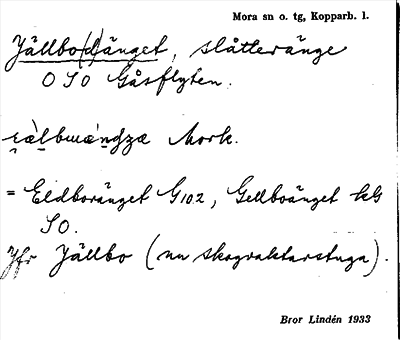 Mora sn o. tg, Kopparb. l.
Jällbo(d)änget, slåtteränge
O SO Gåsflyten.
Mork.
= Eldboränget G102, Gellboänget kG
SO.
Jfr Jällbo (nu skogvaktarstuga).
Bror Lindén 1933